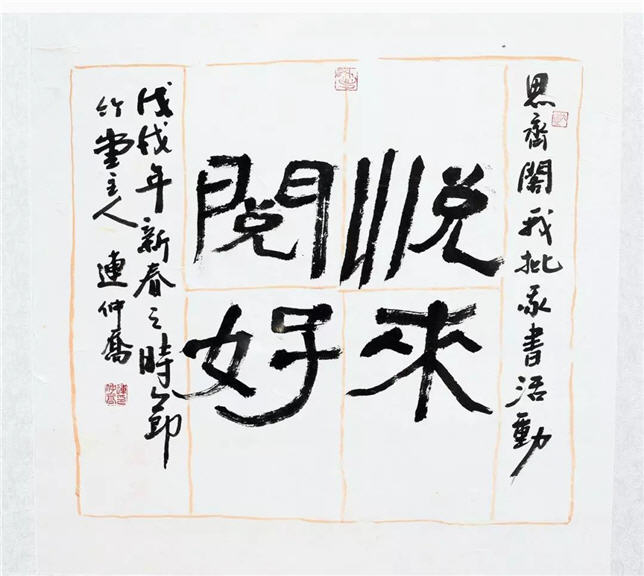 思齊閣我批書活動
悅來
閱好
戊戌年新春之時節
竹堂主人 連仲喬